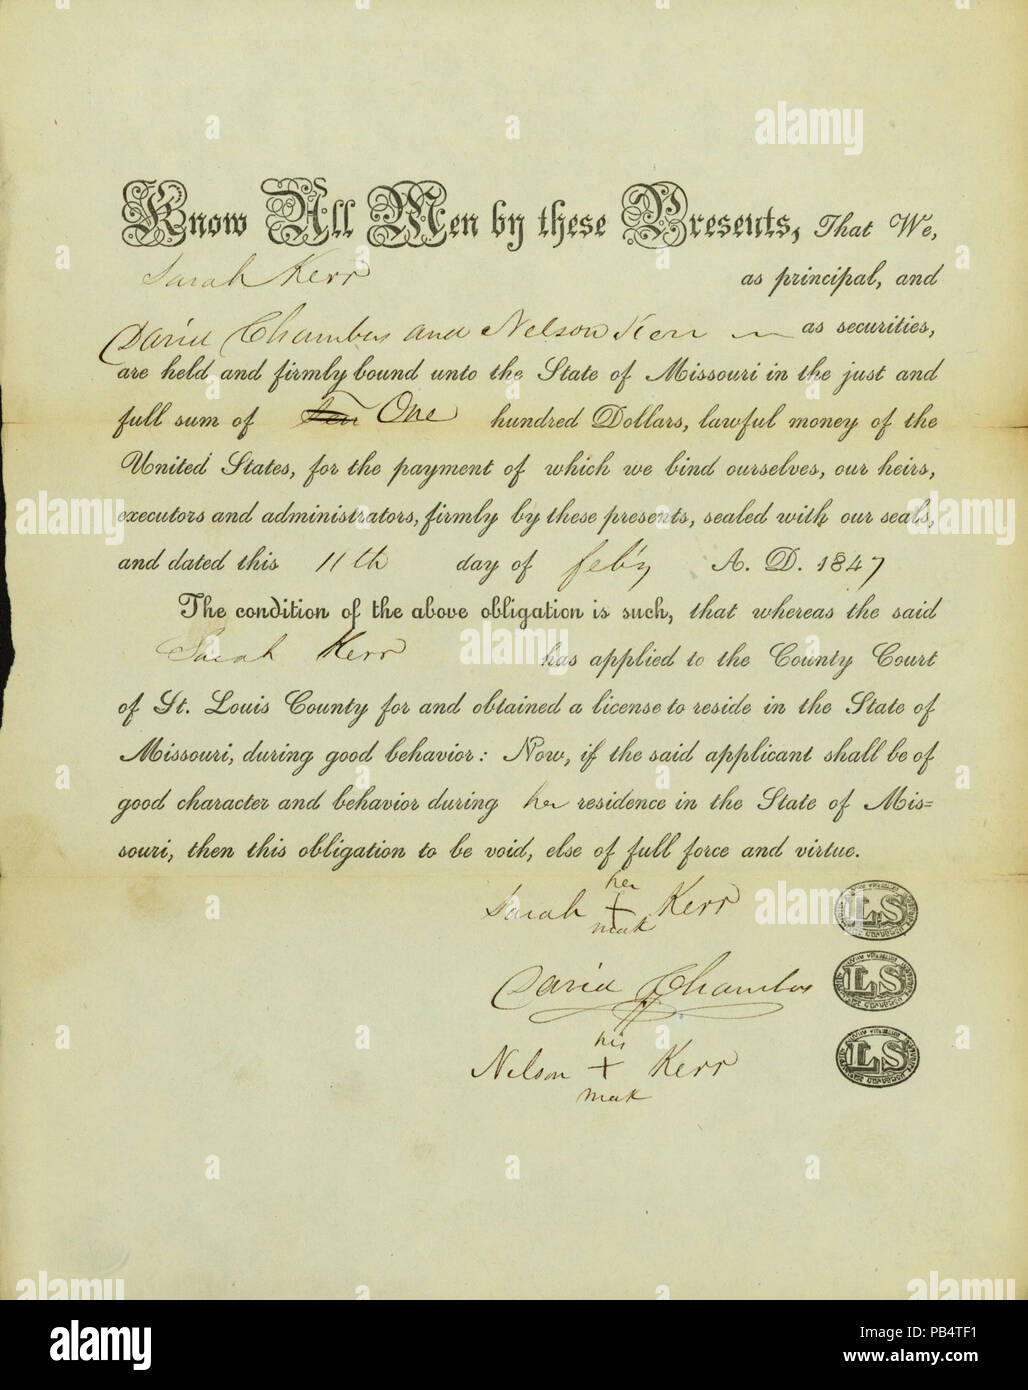 Know All Men by these Presents, That We,
Sarah Kerr as principal, and
David Chambers and Nelson Kerr as securities,
are held and firmly bound unto the State of Missouri in the just and
full sum of ten One hundred Dollars, lawful money of the
United States, for the payment of which we bind ourselves, our heirs,
executors and administrators, firmly by these presents, sealed with our seals,
and dated this 11th day of feb'y A. D. 1847
The condition of the above obligation is such, that whereas the said
Sarah Kerr has applied to the County Court
of St. Louis County for and obtained a license to reside in the State of
Missouri, during good behavior: Now, if the said applicant shall be of
good character and behavior during her residence in the State of Mis=
souri, then this obligation to be void, else of full force and virtue.
her
Sarah + Kerr LS
mark
David Chambers LS
his
Nelson + Kerr LS
mark
alamy
a
alamy stock photo
Image ID: PB4TF1
www.alamy.com